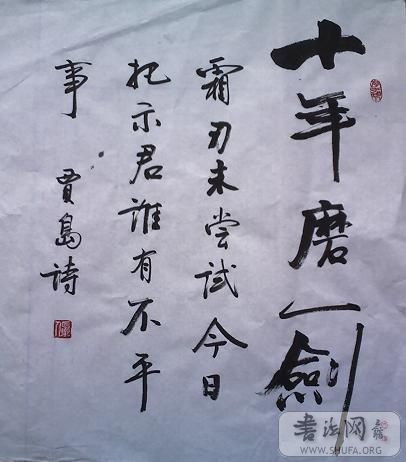 十年磨一剑
霜刃未尝试今日
把示君谁有不平
事
贾岛诗
书法网
WWW.SHUFA.ORG